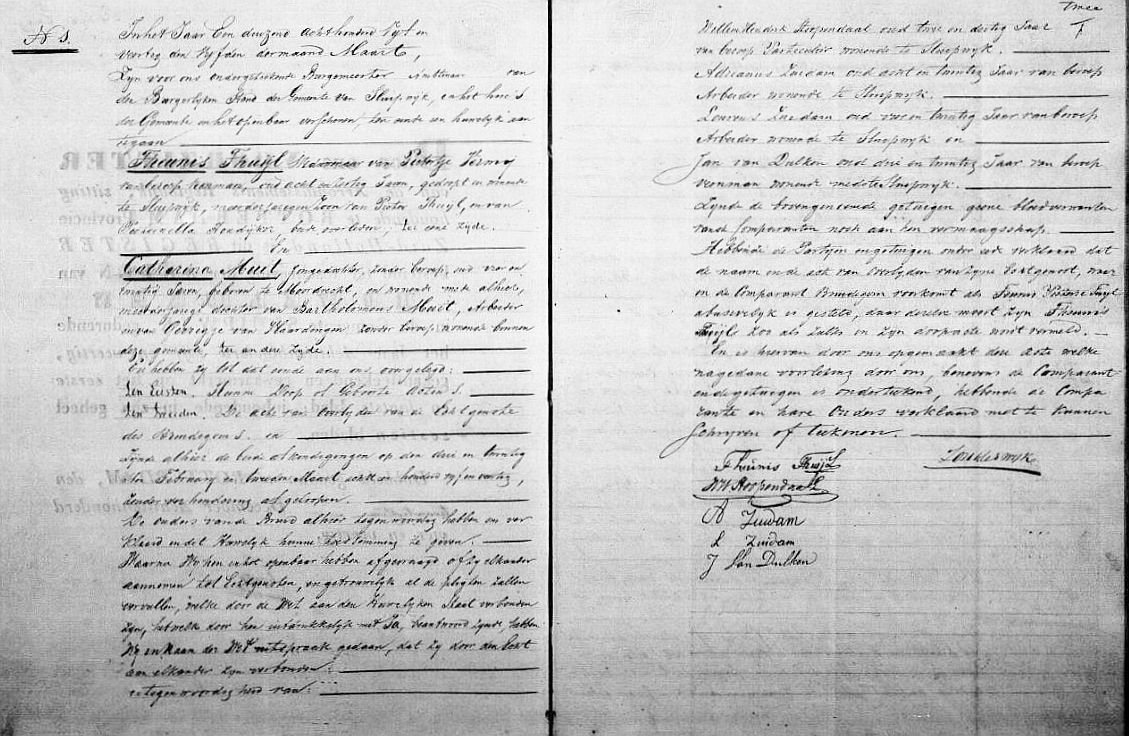 N 5.
In het Jaar Een duizend Achthonderd Vyf en
veertig den Vyfden der maand Maart,
Zyn voor ons ondergeteekende Burgemeester Ambtenaar van
den Burgerlyken Stand der Gemeente van Sluipwyk, en het huis
der Gemeente in het openbaar verschenen, ten einde een huwelyk aan
tegaan
Theunis Thuyl Weduwnaar van Pietertje Verwey
van beroep oud acht en dertig Jaren, gedoopt en wonende
te Sluipwyk, meerderjarigen Zoon van Pieter Thuyl, en van
Pieternella Hondyker, beide overleden, ter eene zyde.
En
Catharina Muit, Jongedochter, zonder beroep, oud vier en
twintig Jaren, geboren te Moordrecht, en wonende mede alhier,
meerderjarige dochter van Bartholomeus Muit, Arbeider
en van van Vlaardingen zonder beroep wonende binnen
deze gemeente, ter andere zyde.
En hebben zy tot dat einde aan ons overgelegd:
Ten Eersten, Hunne Doop of Geboorte Acten
Ten tweeden De acte van Overlyden van de Echtgenote
des Bruidegoms. en
Zynde alhier de beide afkondigingen op den drie en twintig
sten February en tweeden Maart achttien honderd vyf en veertig,
zonder verhindering afgeloopen.
De ouders van de Bruid alhier tegenwoordig hebben ons ver
klaard in dit Huwelyk hunne toestemming te geven.
Waarna Wy hen in het openbaar hebben afgevraagd of zy elkander
aannemen tot Echtgenoten, en getrouwelyk al de pligten zullen
vervullen, welke door de Wet aan den Huwelyken Staat verbonden
zyn, hetwelk door hen uitdrukkelyk met Ja, beantwoord zynde, hebben
Wy in Naam der Wet uitspraak gedaan, dat zy door den Echt
aan elkander zyn verbonden:
in tegenwoordigheid van:
twee
Willem Hendrik Roopendaal oud twee en dertig Jaar
van beroep Particulier wonende te Sluipwyk.
Adrianus Zuidam oud acht en twintig Jaar van beroep
Arbeider wonende te Sluipwyk.
Lourens Zuidam oud vier en twintig Jaar van beroep
Arbeider wonende te Sluipwyk en
Jan van Dulken oud drie en twintig Jaar van beroep
veenman wonende mede te Sluipwyk.
Zynde de bovengenoemde getuigen geene bloedverwanten
van de Comparanten noch aan hen vermaagschap.
Hebbende de Partyen en getuigen onder eede verklaard dat
de naam in de acte van Overlyden van zyne Echtgenoot, waar
in de Comparant Bruidegom voorkomt als Teunis Pieterse Tuyl
abusivelyk is gesteld, daar dezelve moet zyn Theunis
Thuyl zoo als zulks in zyn doopacte word vermeld.
En is hiervan door ons opgemaakt deze acte welke
na gedane voorlezing door ons, benevens de Comparant
en de getuigen is onderteekend, hebbende de Compa
rante en hare Ouders verklaard niet te kunnen
Schryven of teekenen.
Theunis Thuijl
WH Roopendaal
A Zuidam
L Zuidam
J Van Dulken